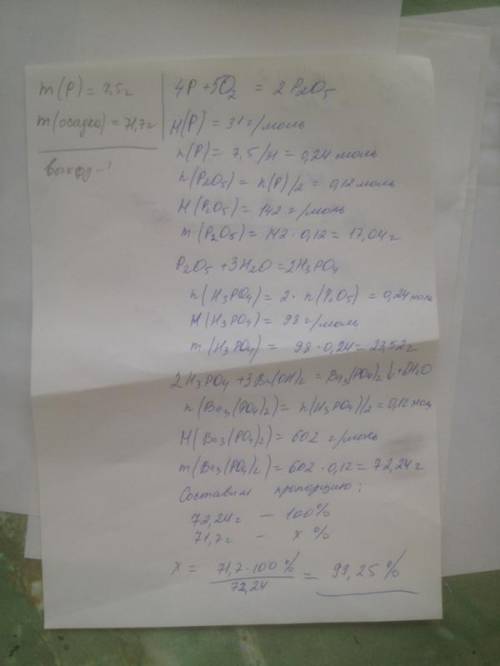 m(P) = 7,5г
m(осадка) = 71,7г
выход - ?
4P + 5O₂ = 2P₂O₅
M(P) = 31г/моль
n(P) = 7,5/31 = 0,24 моль
n(P₂O₅) = n(P)/2 = 0,12 моль
M(P₂O₅) = 142 г/моль
m(P₂O₅) = 142 · 0,12 = 17,04г
P₂O₅ + 3H₂O = 2H₃PO₄
n(H₃PO₄) = 2 · n(P₂O₅) = 0,24 моль
M(H₃PO₄) = 98 г/моль
m(H₃PO₄) = 98 · 0,24 = 23,52г
2H₃PO₄ + 3Ba(OH)₂ = Ba₃(PO₄)₂↓ + 6H₂O
n(Ba₃(PO₄)₂) = n(H₃PO₄)/2 = 0,12 моль
M(Ba₃(PO₄)₂) = 602 г/моль
m(Ba₃(PO₄)₂) = 602 · 0,12 = 72,24г
Составим пропорцию:
72,24г - 100%
71,7г - x%
x = 71,7 · 100% / 72,24 = 99,25%